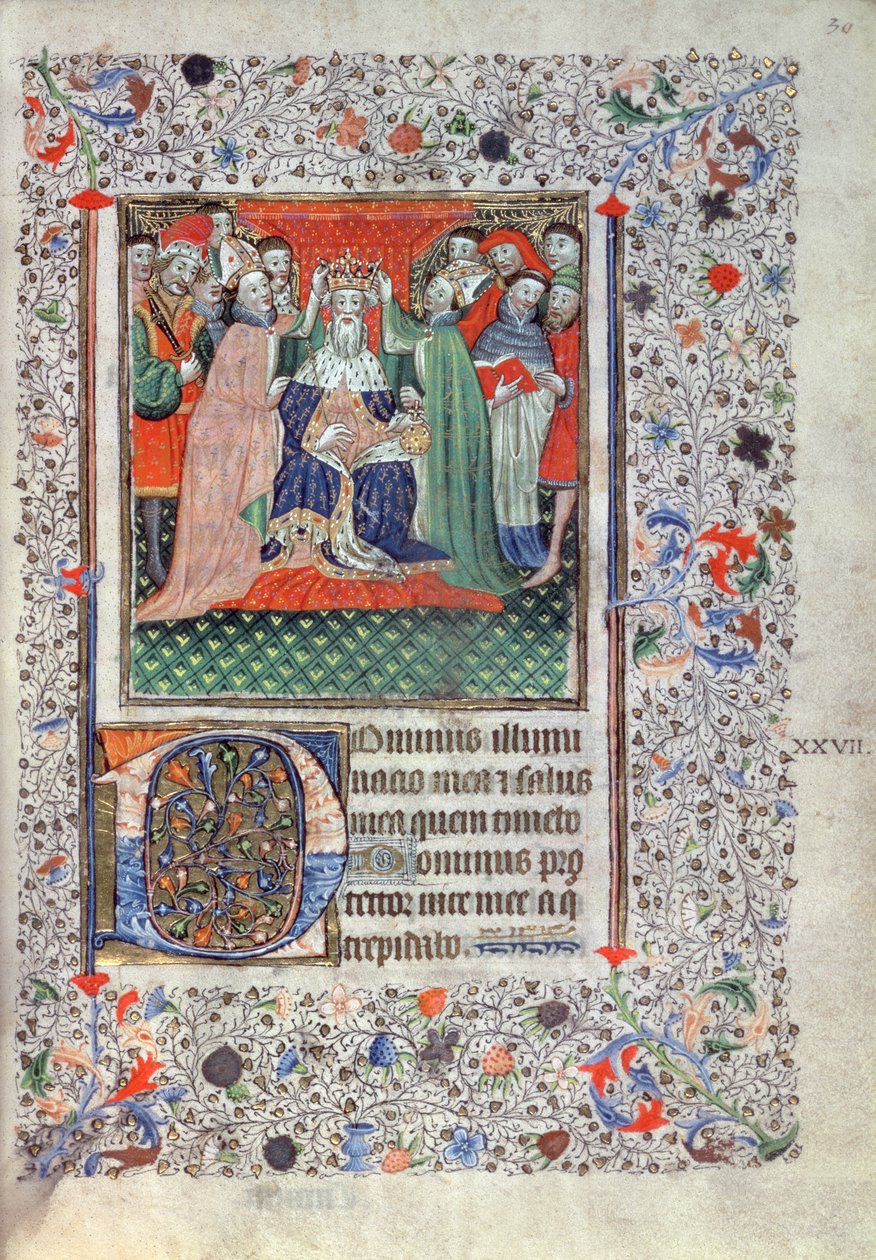 30
Dominus illumi
natio mea ⁊ salus
mea quem timebo
Dominus pro
tector uite mee a q
trepidabo.
XXVII.